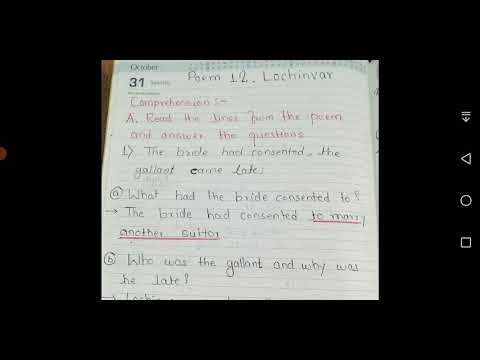 October
31
Poem 12. Lochinvar
Comprehension:-
A. Read the lines from the poem
and answer the questions
1) The bride had consented, the
gallant came late.
(a) What had the bride consented to?
→ The bride had consented to marry
another suitor
(b) Who was the gallant and why was
he late?